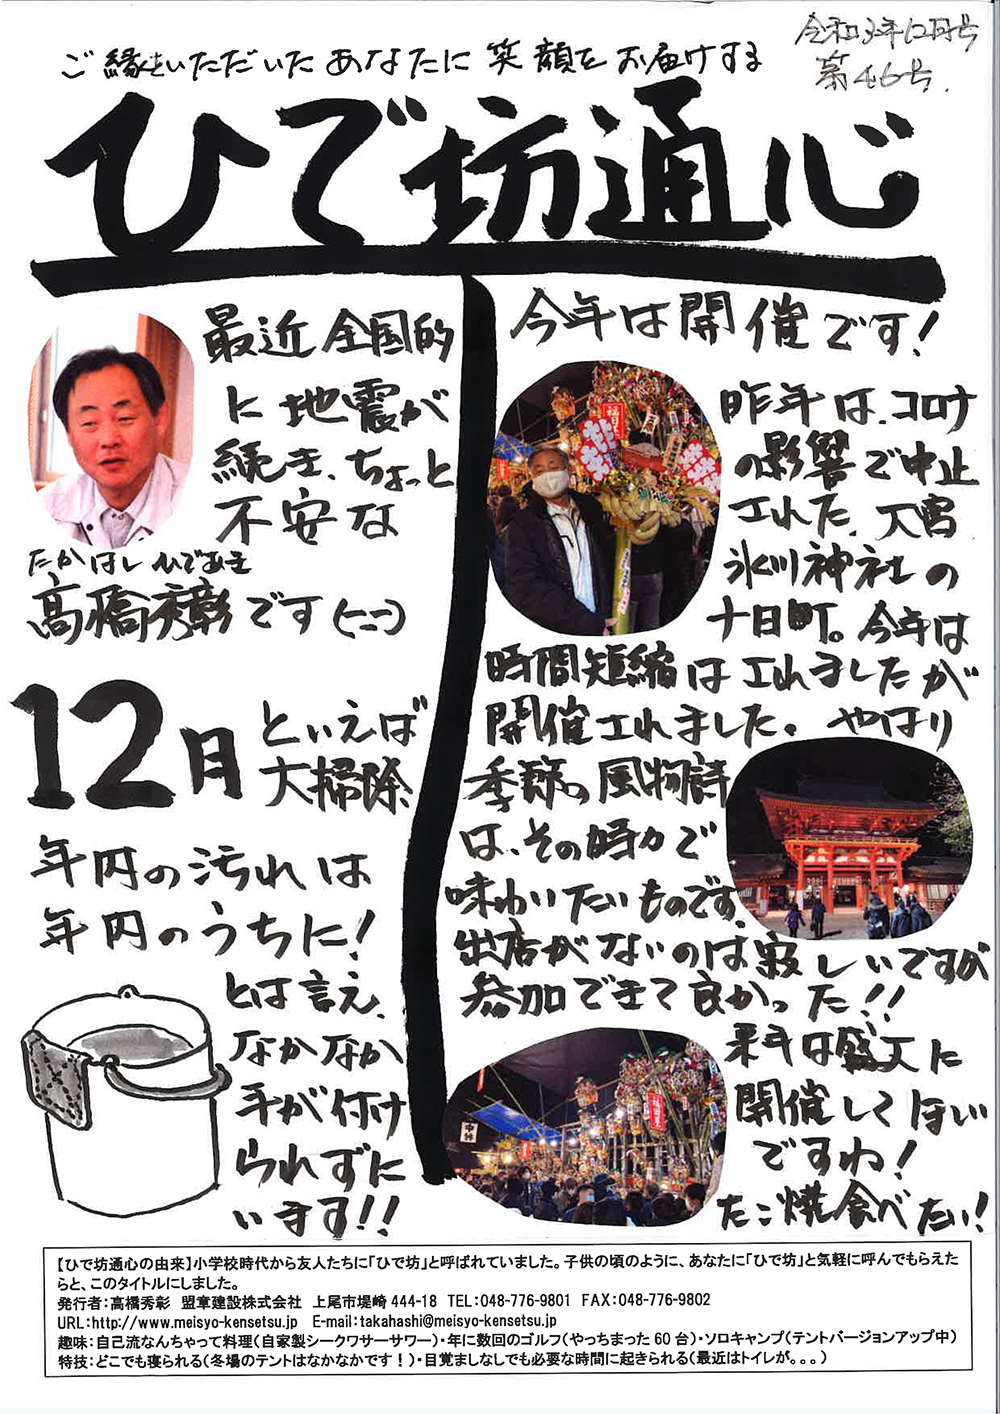 令和3年12月号
第46号.
ご縁をいただいたあなたに笑顔をお届けする
ひで坊通心
最近全国的
に地震が
続き、ちょっと
不安な
たかはしひであき
高橋秀彰です(^-^)
12月
といえば
大掃除
年内の汚れは
年内のうちに!
とは言え、
なかなか
手が付け
られずに
います!!
今年は開催です!
昨年は、コロナ
の影響で中止
された、大宮
氷川神社の
十日町。今年は
時間短縮はされましたが
開催されました。やはり
季節の風物詩
は、その時々で
味わいたいものです。
出店がないのは寂しいですが
参加できて良かった!!
来年は盛大に
開催してほしい
ですね!
たこ焼食べたい!
【ひで坊通心の由来】小学校時代から友人たちに「ひで坊」と呼ばれていました。子供の頃のように、あなたに「ひで坊」と気軽に呼んでもらえた
らと、このタイトルにしました。
発行者:高橋秀彰 盟章建設株式会社 上尾市堤崎444-18 TEL:048-776-9801 FAX:048-776-9802
URL:http://www.meisyo-kensetsu.jp E-mail:takahashi@meisyo-kensetsu.jp
趣味:自己流なんちゃって料理(自家製シークワサーサワー)・年に数回のゴルフ(やっちまった60台)・ソロキャンプ(テントバージョンアップ中)
特技:どこでも寝られる(冬場のテントはなかなかです!)・目覚ましなしでも必要な時間に起きられる(最近はトイレが。。。)